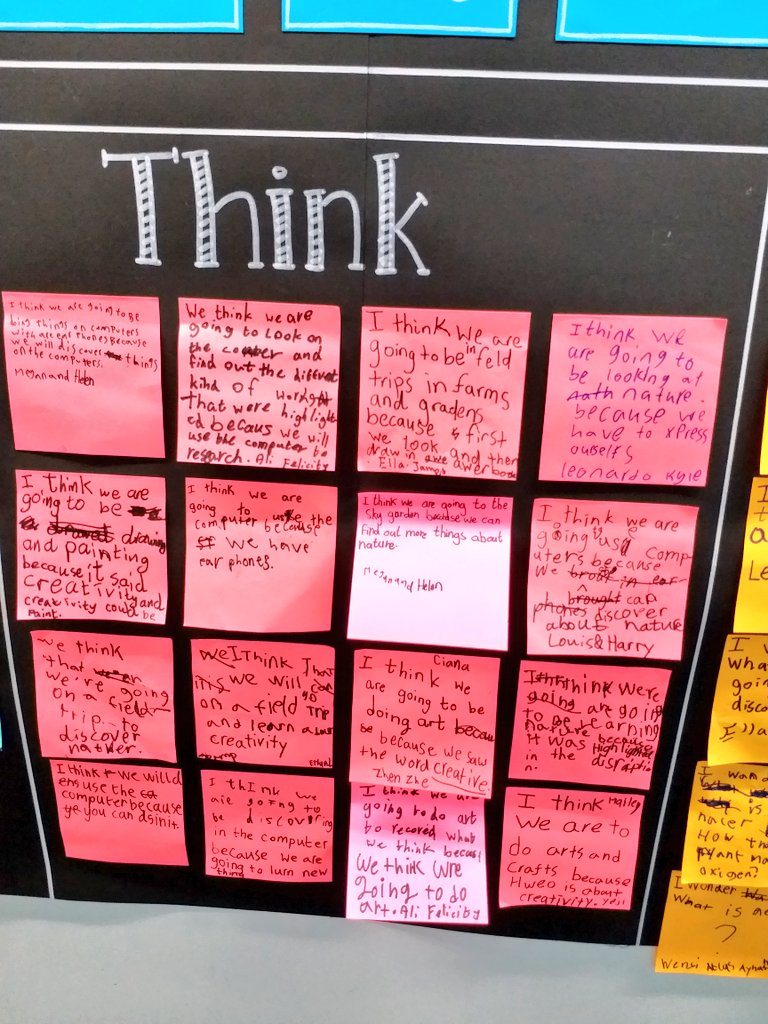 Think
I think we are going to be
things on computers
because
we will discover things
on the computers.
Megan and Helen
We think we are
going to Look on
the and
find out the
kind of
that were highlight
ed becaus we will
use the computer to
research. Ali Felicity
I think we are
going to be in feld
trips in farms
and gradens
because first
we look and then
draw in
Ella-
I think we
are going to
be looking at
nature.
because we
have to xpress
ouselfs
leonardo kyle
I think we are
going to be
drawing
and painting
because it said
creativity and
creativity could be
Paint.
I think we are
going to use the
computer because
we have
ear phones.
I think we are going to the
Sky garden because we can
find out more things about
nature.
Megan and Helen
I think we are
going use comp
uters because
we
brought ear
phones discover
about nature
Louis & Harry
We think
that
we're going
on a field
trip. to
discover
nather.
We I Think That
we will go
on a field Trip
and learn
creativity
Ciana
I think we
are going to be
doing art
because we saw
the word creative.
Then the
think were
going are going
to be learning
nature because
it was Highlighted
in the
I think we will
use the
computer because
you can
I think we
are going to
be discovering
in the computer
because we are
going to lurn new
thing
I think we are
going to do art
to record what
we think because
We think we
going to do
art. Ali Felicity
I think Hailey
We are to
do arts and
Crafts because
is about
creativity. yes!
I
What
goin
disco
I wond
is
How
Plant
oxigen?
I wonder
What is
?